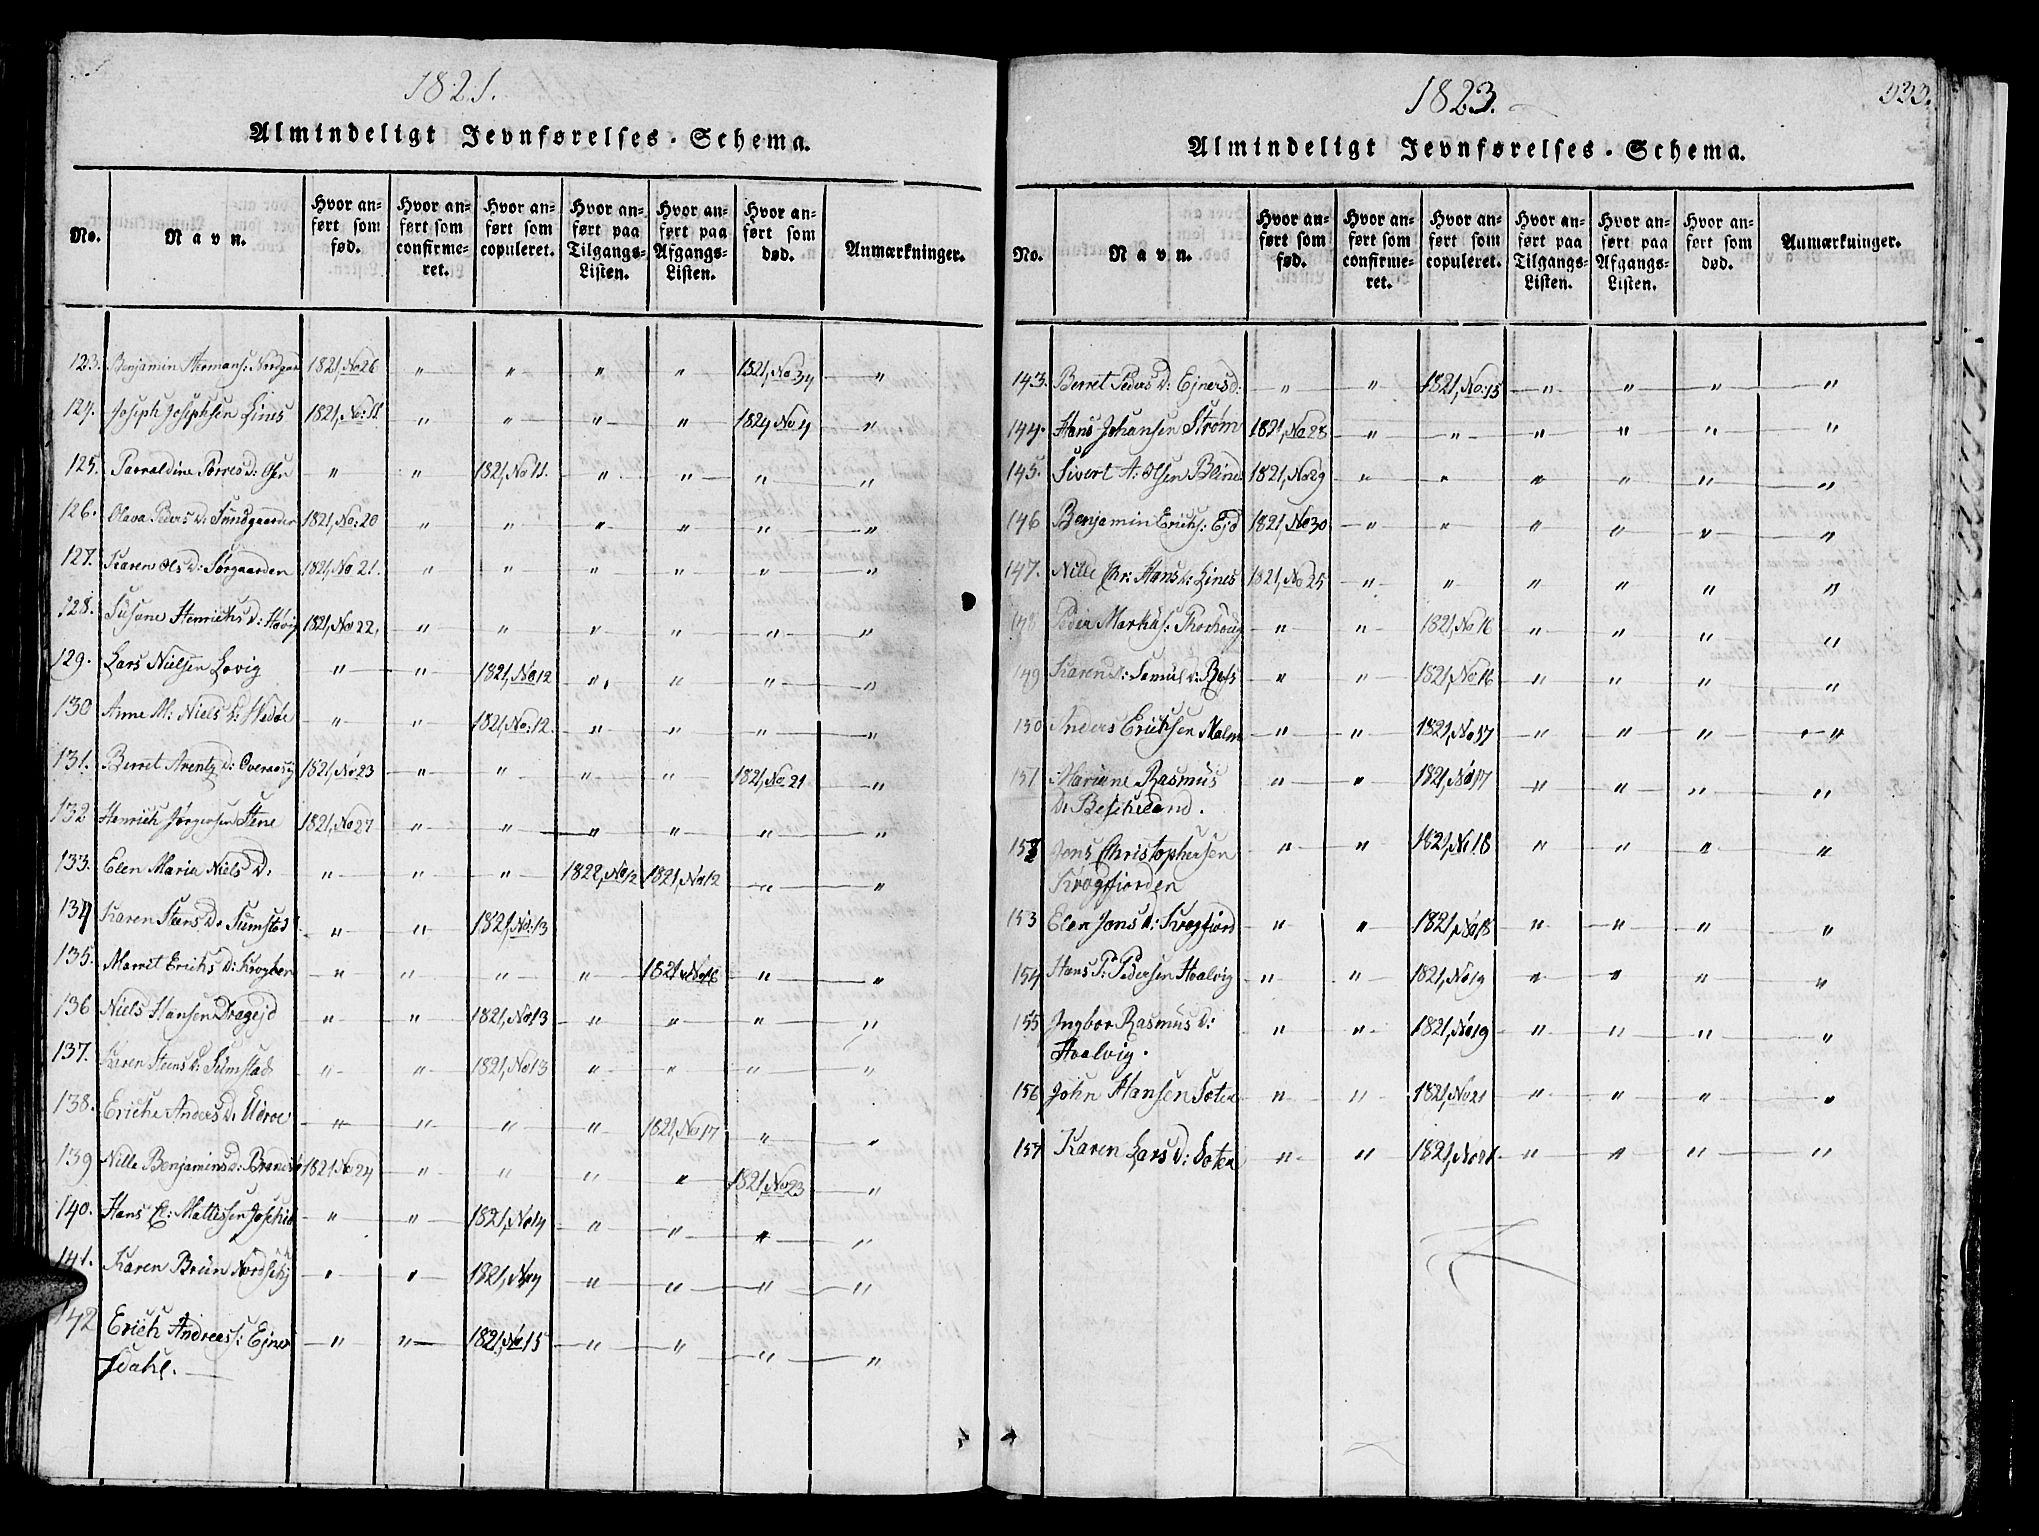 1821.
Almindeligt Jevnførelses-Schema.
No. Navn. Hvor anført som fød. Hvor anført som confirmeret. Hvor anført som copuleret. Hvor anført paa Tilgangs-Listen. Hvor anført paa Afgangs-Listen. Hvor anført som død. Anmærkninger.
123. Benjamin Hermans: 1821, No 26 " " " " 1821, No 34 "
124. Joseph Josephsen Lines 1821, No: 11 " " " " 1824 No 4 "
125. Torres d: Osen " " 1821, No 11. " " " "
126. Olava Peders d: Sundgaarden 1821, No: 20 " " " " " "
127. Karen Ols d: Sørgaarden 1821, No 21. " " " " " "
128. Susane Henrichs d: Høvig 1821, No 22, " " " " " "
129. Lars Nielsen Lovig " " 1821, No 12 " " " "
130 Ane M: Niels d: " " 1821, No: 12. " " " "
131. Berret Arentz d: 1821, No 23 " " " " 1821, No 21 "
132 Henrich Jørgensen Stene 1821, No 27 " " " " " "
133. Elen Maria Niels d. " " " 1822, No 12 1821, No 12 " "
134 Karen Steens d: Sumstad " " 1821, No: 13
135. Marrit Erichs d: Krogben " " " " 1821 No 16 " "
136 Niels Hansen Dragejd " " 1821, No 13 " " " "
137. Karen Steens d: Sumstad " " 1821, No 13 " " " "
138. Eriche Anders d: Udroe " " " " 1821, No 17 " "
139 Nille Benjamins d: 1821 No 24 " " " " 1821, No 23 "
140. Hans C: Mattissen " " 1821, No 14 " " " "
141. Karen Brun " " 1821, No 14 " " " "
142 Erich Andreas s: Ejners " " 1821, No 15 " " " "
dahl.
1823.
333.
Almindeligt Jevnførelses-Schema.
No. Navn. Hvor anført som fød. Hvor anført som confirmeret. Hvor anført som copuleret. Hvor anført paa Tilgangs-Listen. Hvor anført paa Afgangs-Listen. Hvor anført som død. Anmærkninger.
143. Berret Peders d: Ejnersd: " " 1821, No: 15 " " " "
144. Hans Johansen Strøm 1821, No 28 " " " " " "
145. Sivert A: Olsen Blind 1821, No 29 " " " " " "
146 Benjamin Erichs: Ejd 1821, No 30 " " " " " "
147. Nille Chr: Hans d: Lines 1821, No 25 " " " " " "
148 Peder Markus: " " 1821, No 16 " " " "
149 Karen d: Samuls d: " " 1821, No 16 " " " "
150 Anders Erichsen Malm " " 1821, No 17 " " " "
151 Mariane Rasmus " " 1821, No 17 " " " "
d: Beskeland.
152 Jens Christophersen " " 1821, No 18 " " " "
Krogfjorden
153 Elen Jons d: Krogfjord " " 1821, No 18 " " " "
154 Hans P: Pedersen Hoalvig " " 1821, No 19 " " " "
155 Ingbor Rasmus d: " " 1821, No 19 " " " "
Hoalvig.
156 John Hansen Sæter " " 1821, No 21 " " " "
157 Karen Lars d: Sæter " " 1821, No 21. " " " "